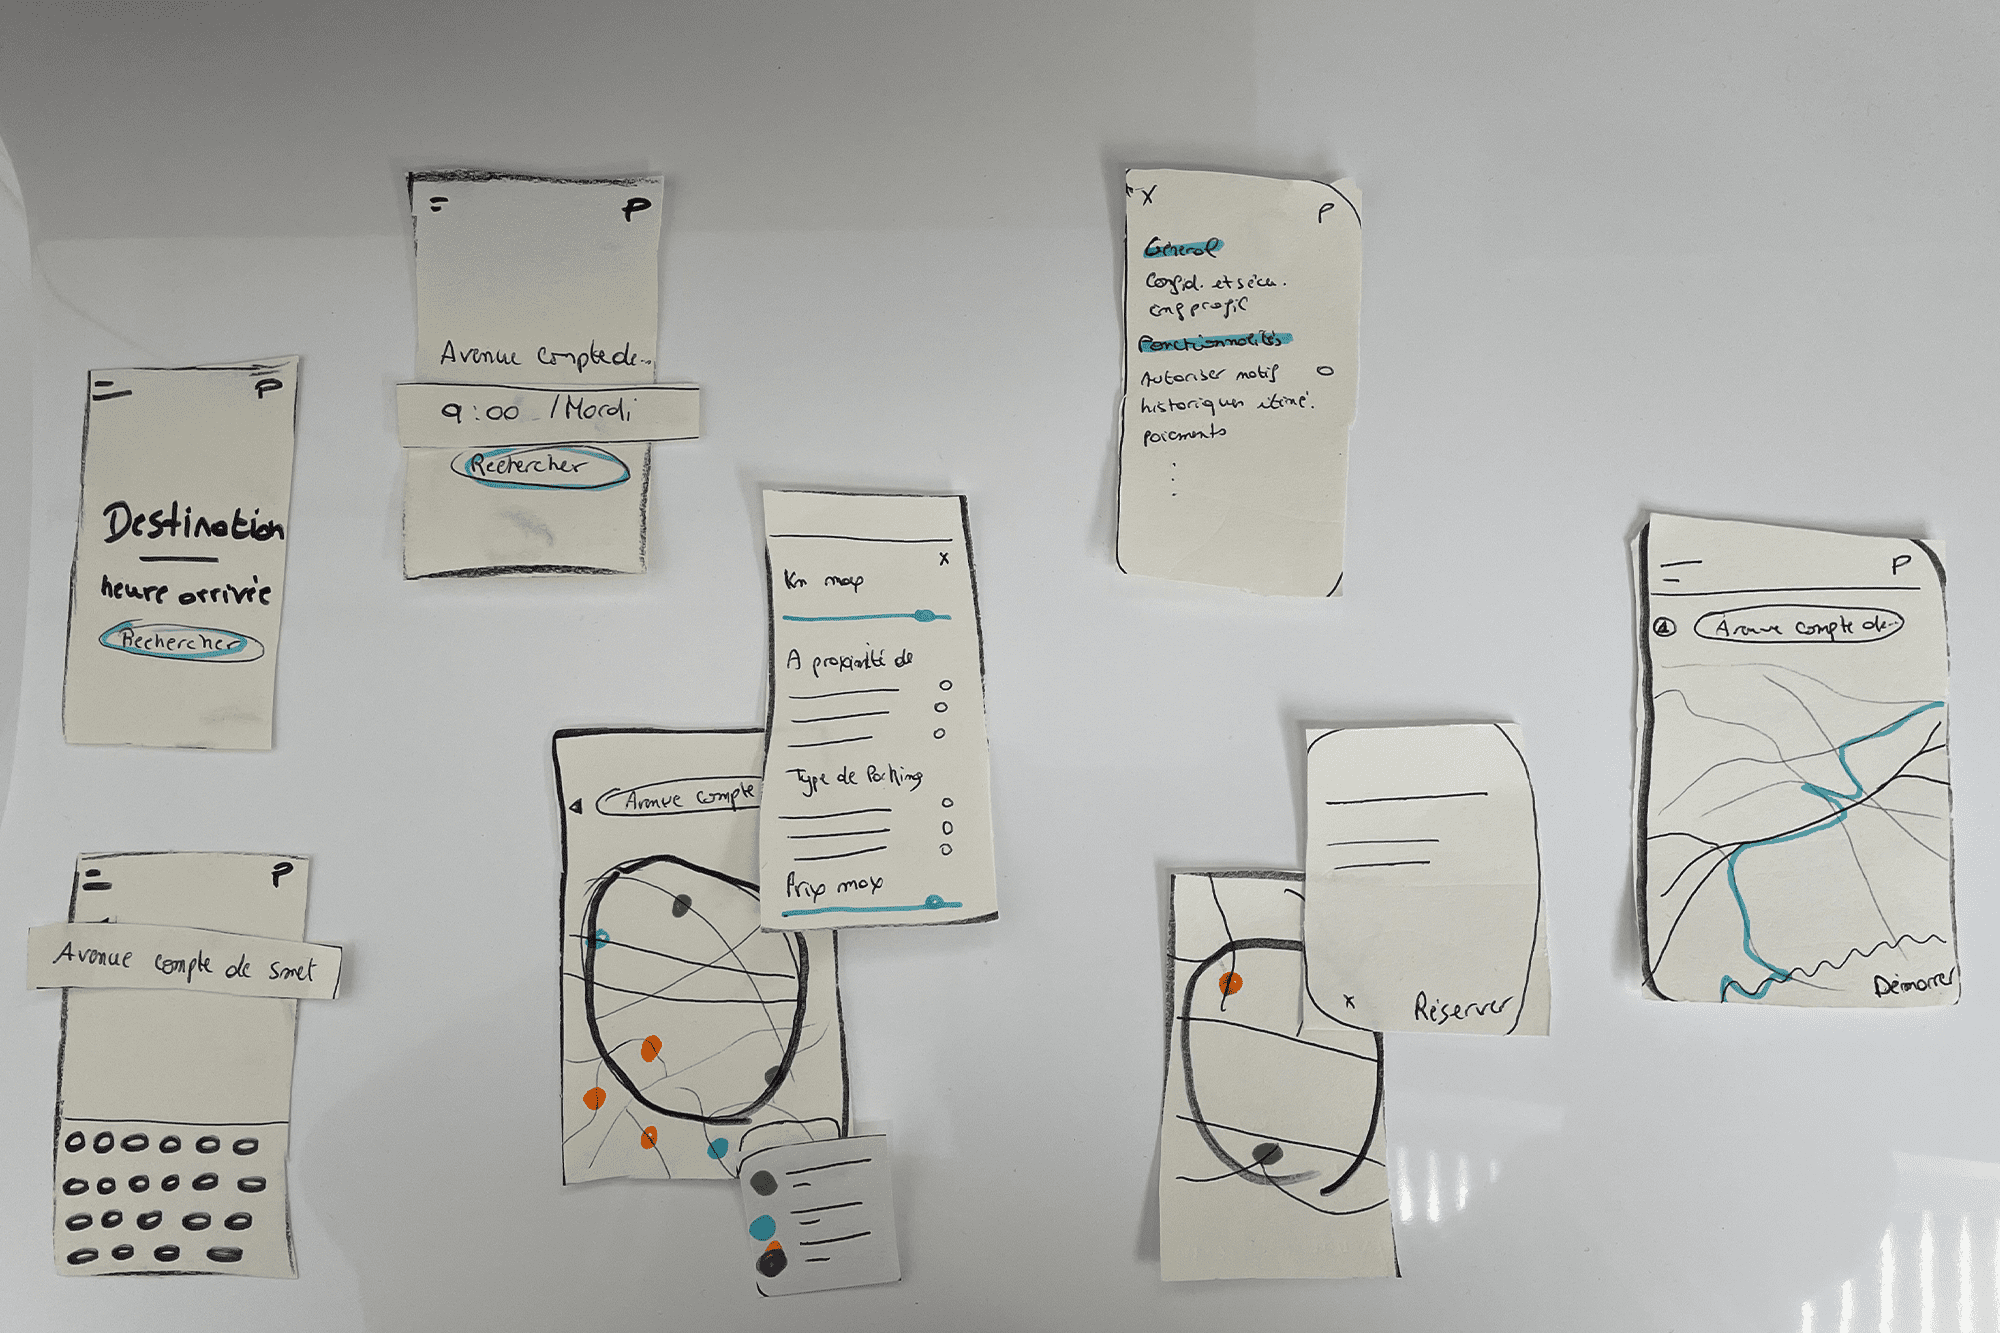 P
Destination
heure arrivée
Rechercher
P
Avenue compte de smet
P
Avenue compte de...
9:00 /Mardi
Rechercher
Avenue compte
X
Km max
A proximité de
Type de Parking
Prix max
X
P
Général
Confid. et sécu.
Fonctionnalités
Autoriser notif
historique itiné.
paiements
X
Réserver
P
Avenue compte de..
Démarrer